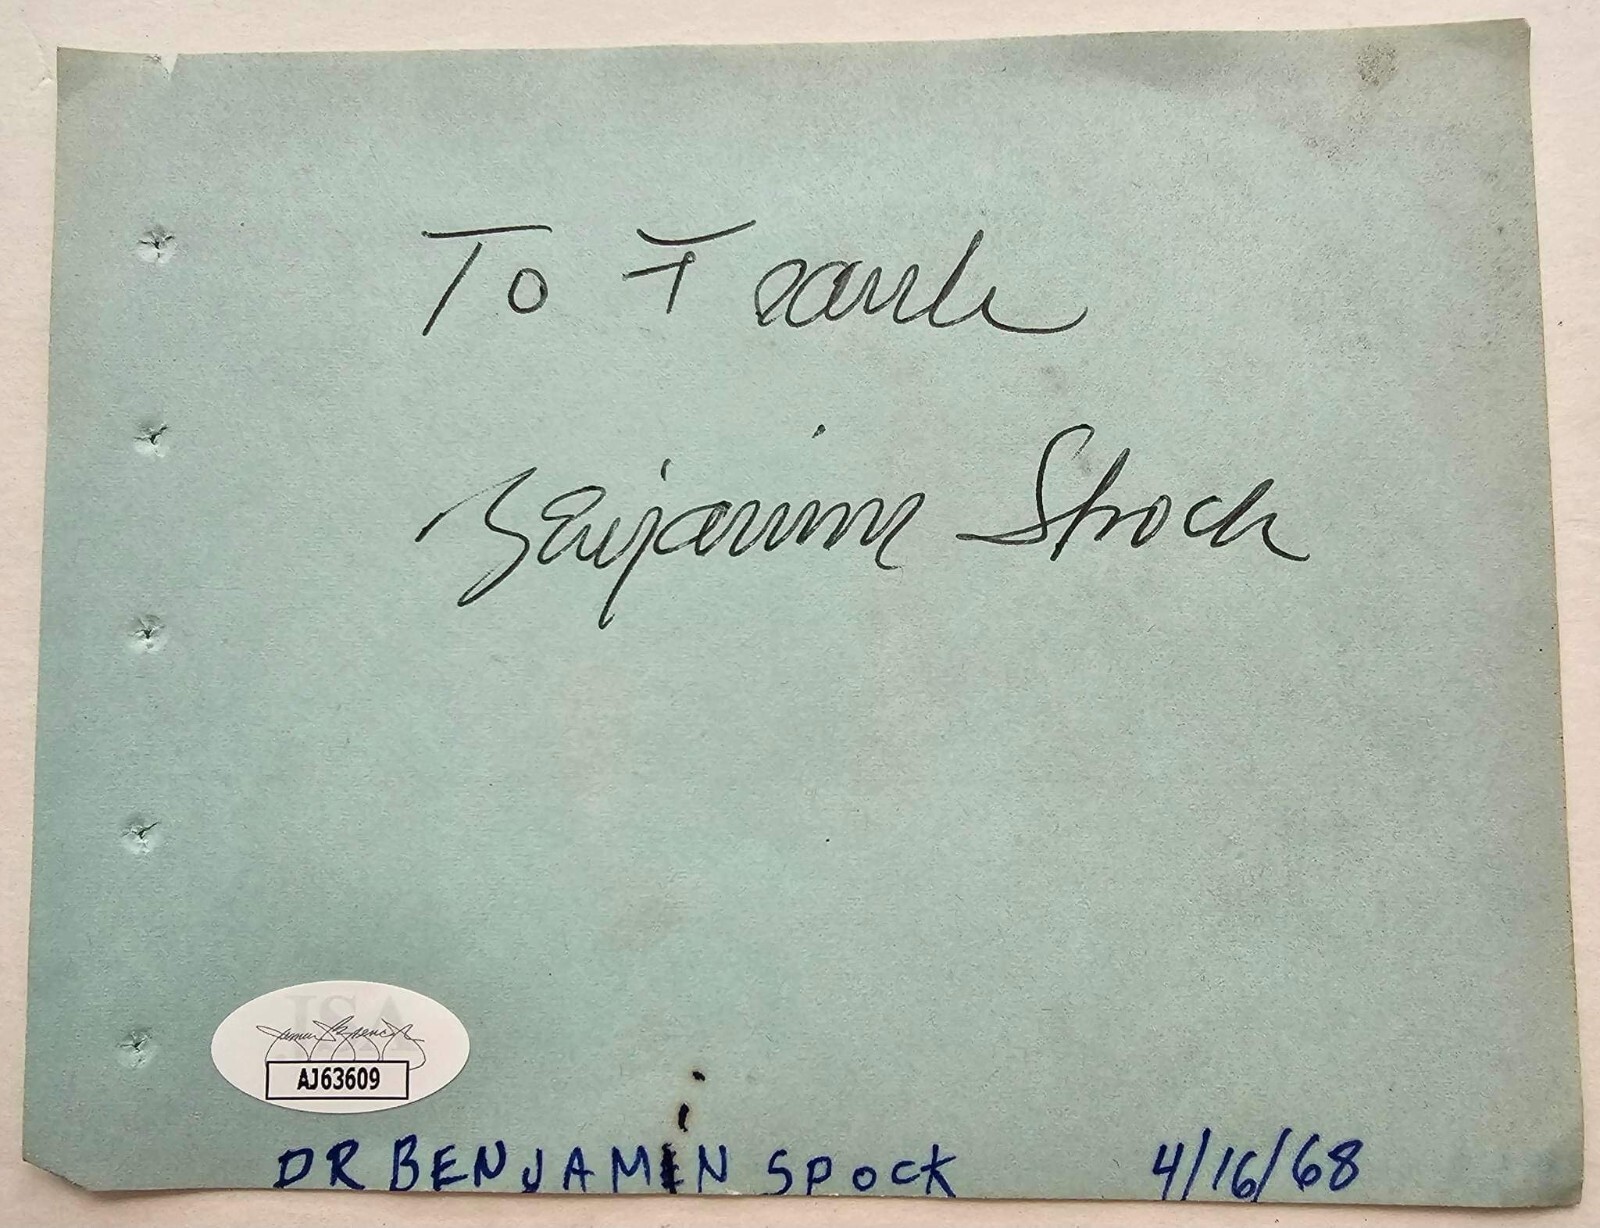 To Frank
Benjamin Spock
JSA
James Spence Jr
AJ63609
DR BENJAMIN SPOCK 4/16/68